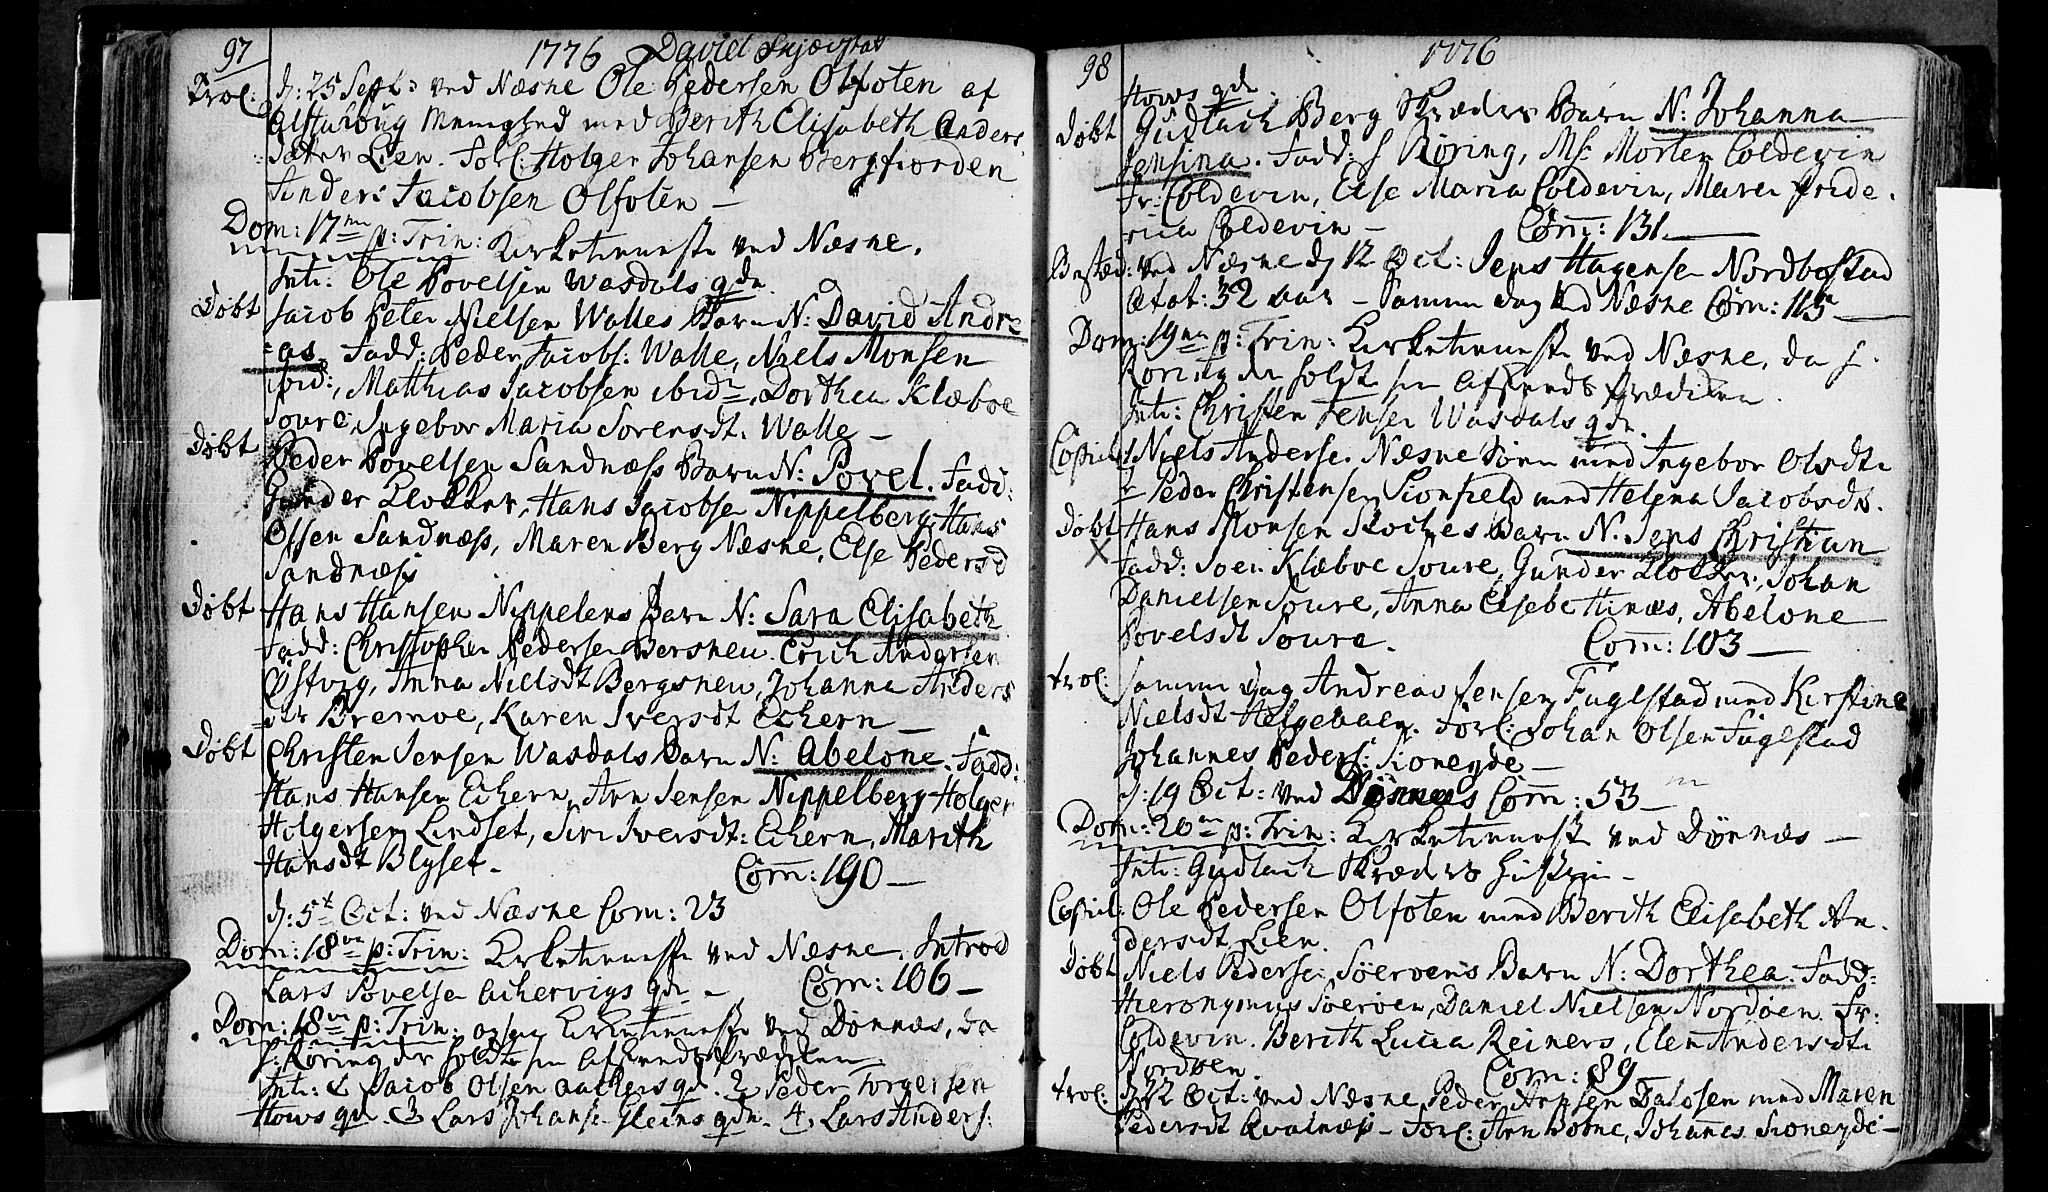 97
1776 David Skjærstad
Trol: d: 25 Sept: ved Næsne Ole Pedersen Olfoten af
Alstahoug Menighed med Berith Elisabeth Anders
datter Lien. Forl: Holger Johansen Bergfiorden
Anders Jacobsen Olfoten –
Dom: 17me p: Trin: Kirketieneste ved Næsne.
Int: Ole Povelsen Wasdals qde.
Døbt Jacob Peter Nielsen Walles Barn N: David Andre
as. Fadd: Peder Jacobs: Walle, Niels Monsen
ibid:, Matthias Jacobsen ibid:, Dorthea Klæboe
Soure, Ingebor Maria Sorensdt: Walle –
Døbt Peder Povelsen Sandnæss Barn N: Povel. Fadd:
Gunder Klokker, Hans Jacobsen Nippelberg, Hans
Olsen Sandnæss, Maren Berg Næsne, Else Pedersd
Sandnæss
Døbt Hans Hansen Nippelens Barn N: Sara Elisabeth
Fadd: Christopher Pedersen Bersneu. Erich Andersen
Østvig, Anna Nielsdt Bergsneu, Johanna Anders
dtr Bremoe, Karen Iversdt Echern –
Døbt Christen Jensen Wasdals Barn N: Abelone. Fadd:
Hans Hansen Echern, Arn Jensen Nippelberg, Holger
Holgersen Lindset, Siri Iversdt: Echern, Marith
Hansdt Blyset.
Com: 190 –
d: 5t Oct: ved Næsne Com: 23
Dom: 18ve p: Trin: Kirketieneste ved Næsne. Introd
Lars Povelsen Achervigs qde –
Com: 106 –
Dom: 18ve p: Trin: ogsaa Kirketieneste ved Dønnæs, da
H: Røring der holdte sin Afskeeds Prædiken
Int: 1 Jacob Olsen Aachers qd. 2 Peder Torgersen
Hows qd. 3 Lars Johanse Gleins qde. 4. Lars Anders:
98
1776
Hows qde.
Døbt Gudlach Berg Skræders Barn N: Johanna
Jensina. Fadd: H Røring, Ms: Morten Coldevin
Fr: Coldevin, Else Maria Coldevin, Maren Fride
rica Coldevin –
Com: 131. –
Begravet: ved Næsne d 12 Oct: Jens Hagensen Nordbostad
Ætat: 32 aar – Samme dag ved Næsne Com: 115 –
Dom: 19ne p: Trin: Kirketieneste ved Næsne, da H.
Røring der holdt sin Afskeeds Prædiken.
Int: Christen Jensen Wasdals qde.
Copul: Niels Andersen Næsne Søren med Ingebor Olsdt:
2 Peder Christensen Sionfield med Helena Jacobsdt.
Døbt Hans Monsen Stoches Barn N. Jens Christian
X
Fadd: Soer. Klæboe Soure, Gunder Klokker, Johan
Danielsen Soure, Anna Elsebe Hinæs, Abelone
Povelsdt Soure.
Com: 103 –
Trol: samme Dag Andreas Jensen Fuglestad med Kirstine
Nielsdt Helgebaen. Forl: Johan Olsen Fuglestad
Johannes Peders: Sioneyde –
d: 19 Oct: ved Dønnæs Com: 53 –
Dom: 20me p: Trin: Kirketieneste ved Dønnæs –
Int: Gudlach Skræders Hustrue –
Copul: Ole Pedersen Olfoten med Berith Elisabeth An
dersdt Lien.
Døbt Niels Pedersen Søerøens Barn N: Dorthea. Fadd:
Hieronymus Søerøen, Daniel Nielsen Nordøen. Fr:
Coldevin. Berith Lucia Reiners, Elen Andersdt:
Nordøen.
Com: 89
Trol: d 22 Oct: ved Næsne Peder Arnsen Dalosen med Maren
Pedersdt Qvalnæss – Forl: Arn Dosne, Johanes Sioneyde –